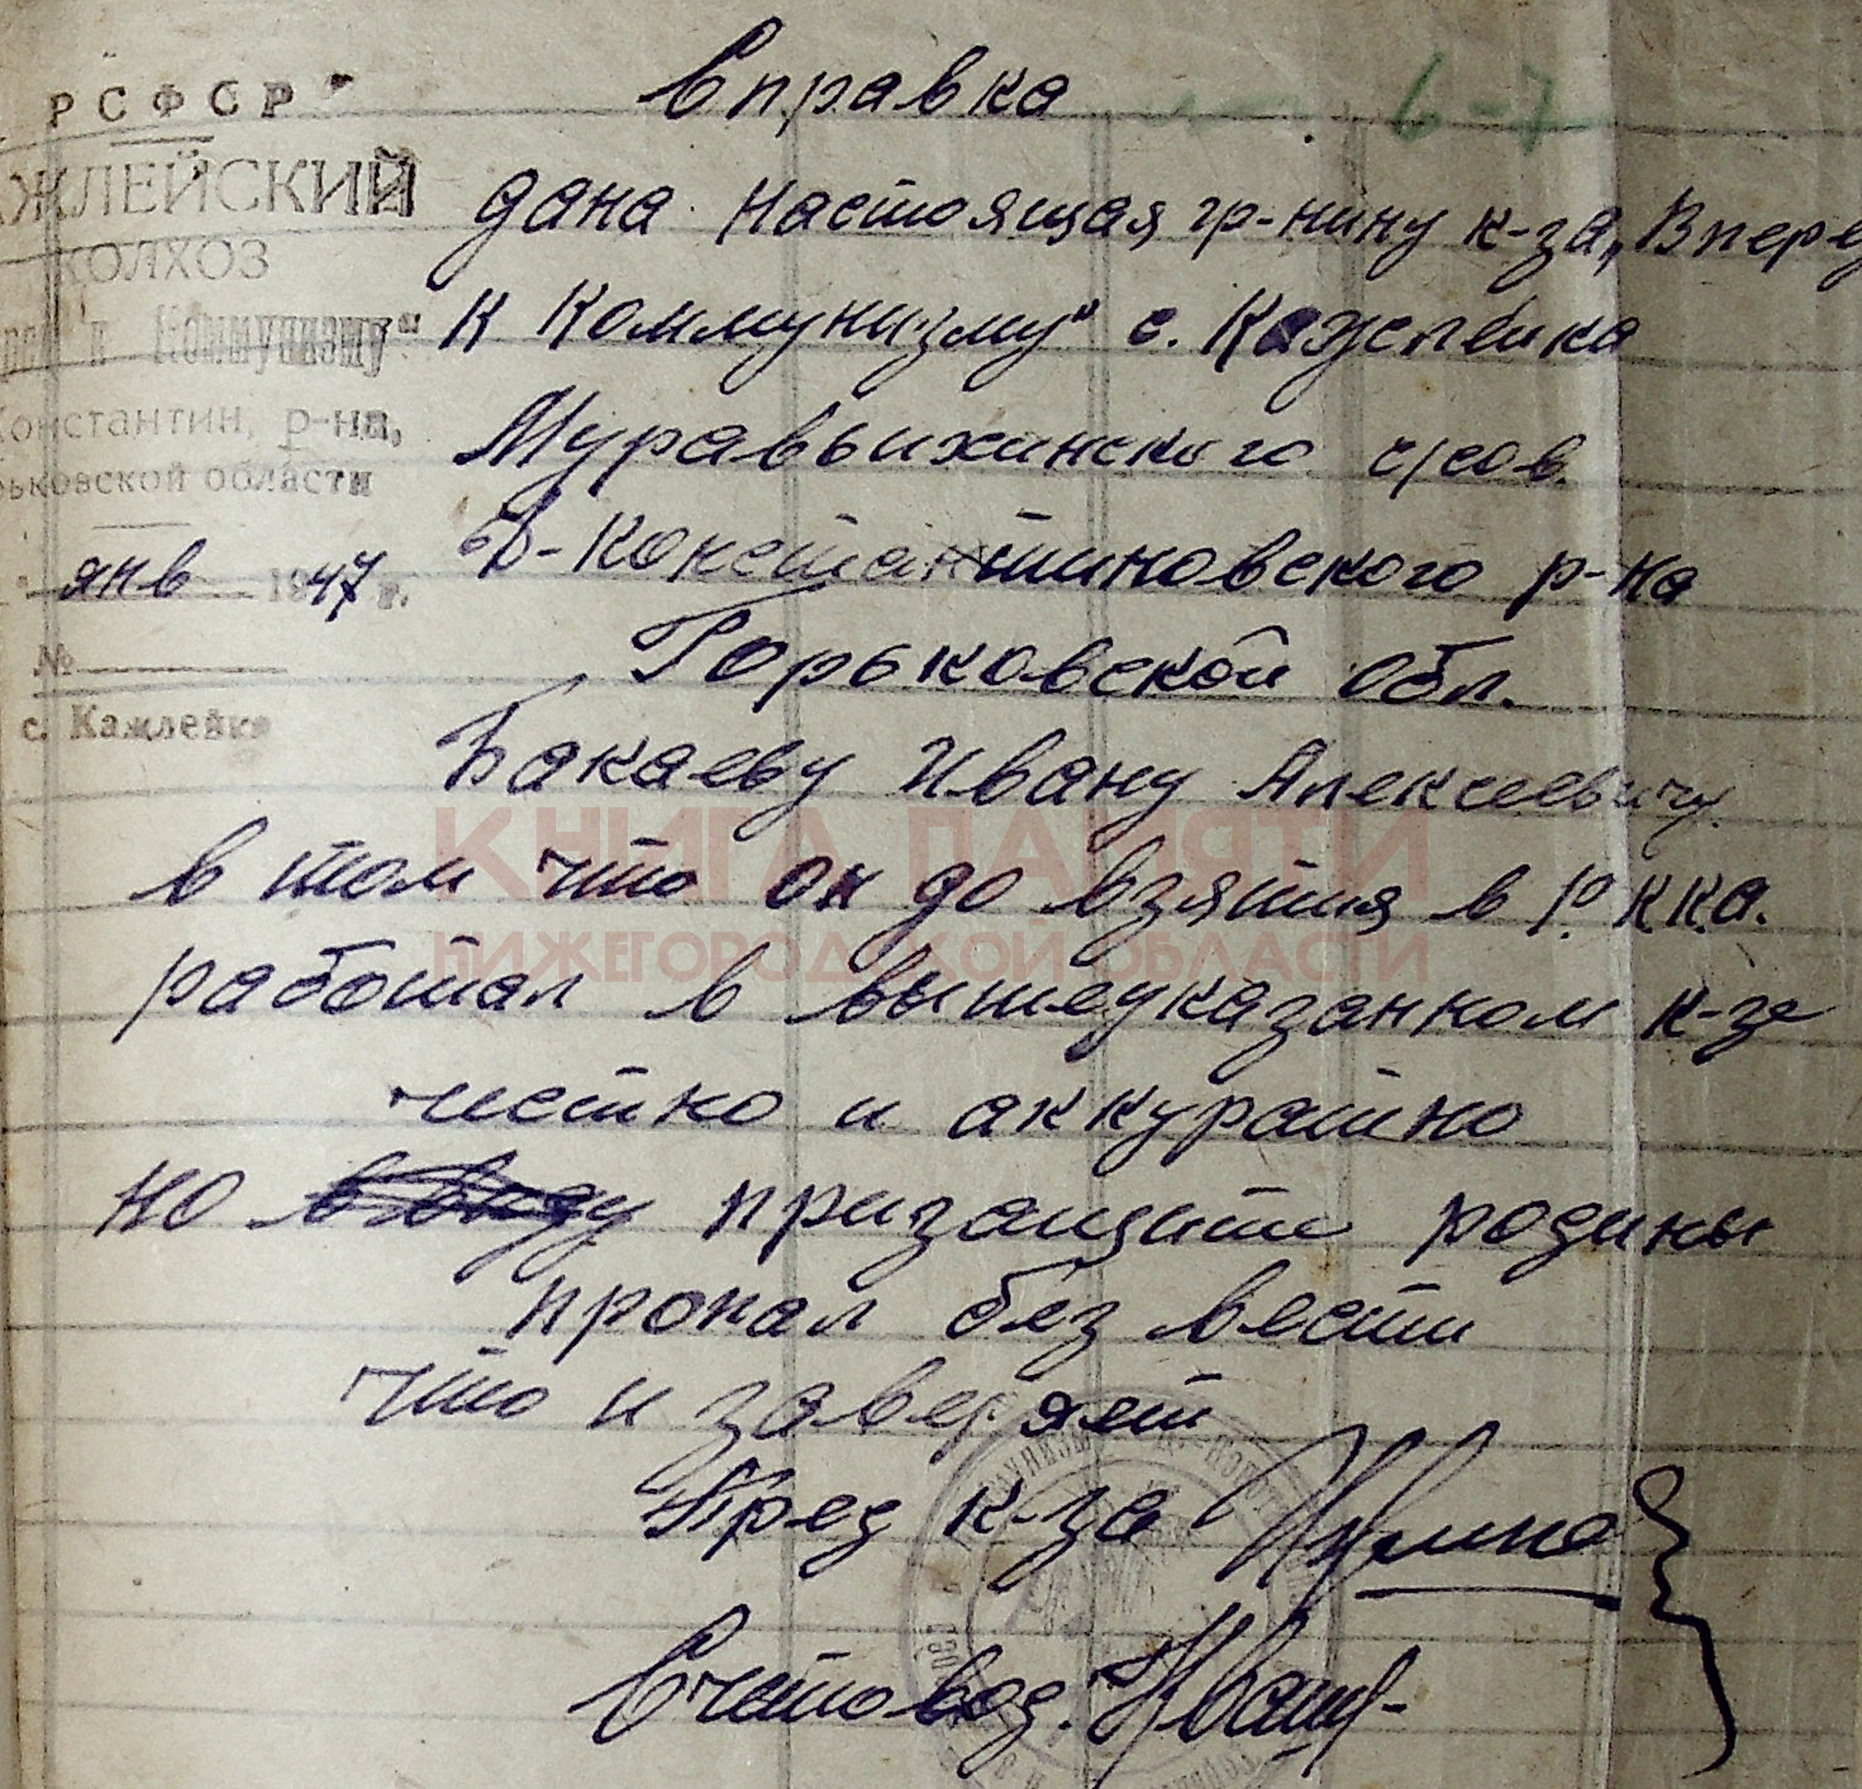 Справка
6-7
РСФСР
ЖЛЕЙСКИЙ
КОЛХОЗ
Коммунизму"
Константин, р-на,
ьковской области
янв 1947 г.
№
с. Кажлейка
дана настоящая гр-нину к-за „Вперед
к коммунизму" с. Кажлейка
Муравьихинского с/сов.
Д-Константиновского р-на
Горьковской обл.
Бакаеву Ивану Алексеевичу
в том что он до взятия в Р.ККА.
работал в вышеуказанном к-зе
честно и аккуратно
но ввиду призащите родины
пропал без вести
что и заверяет
Пред к-за
Счетовод.
КНИГА ПАМЯТИ
НИЖЕГОРОДСКОЙ ОБЛАСТИ